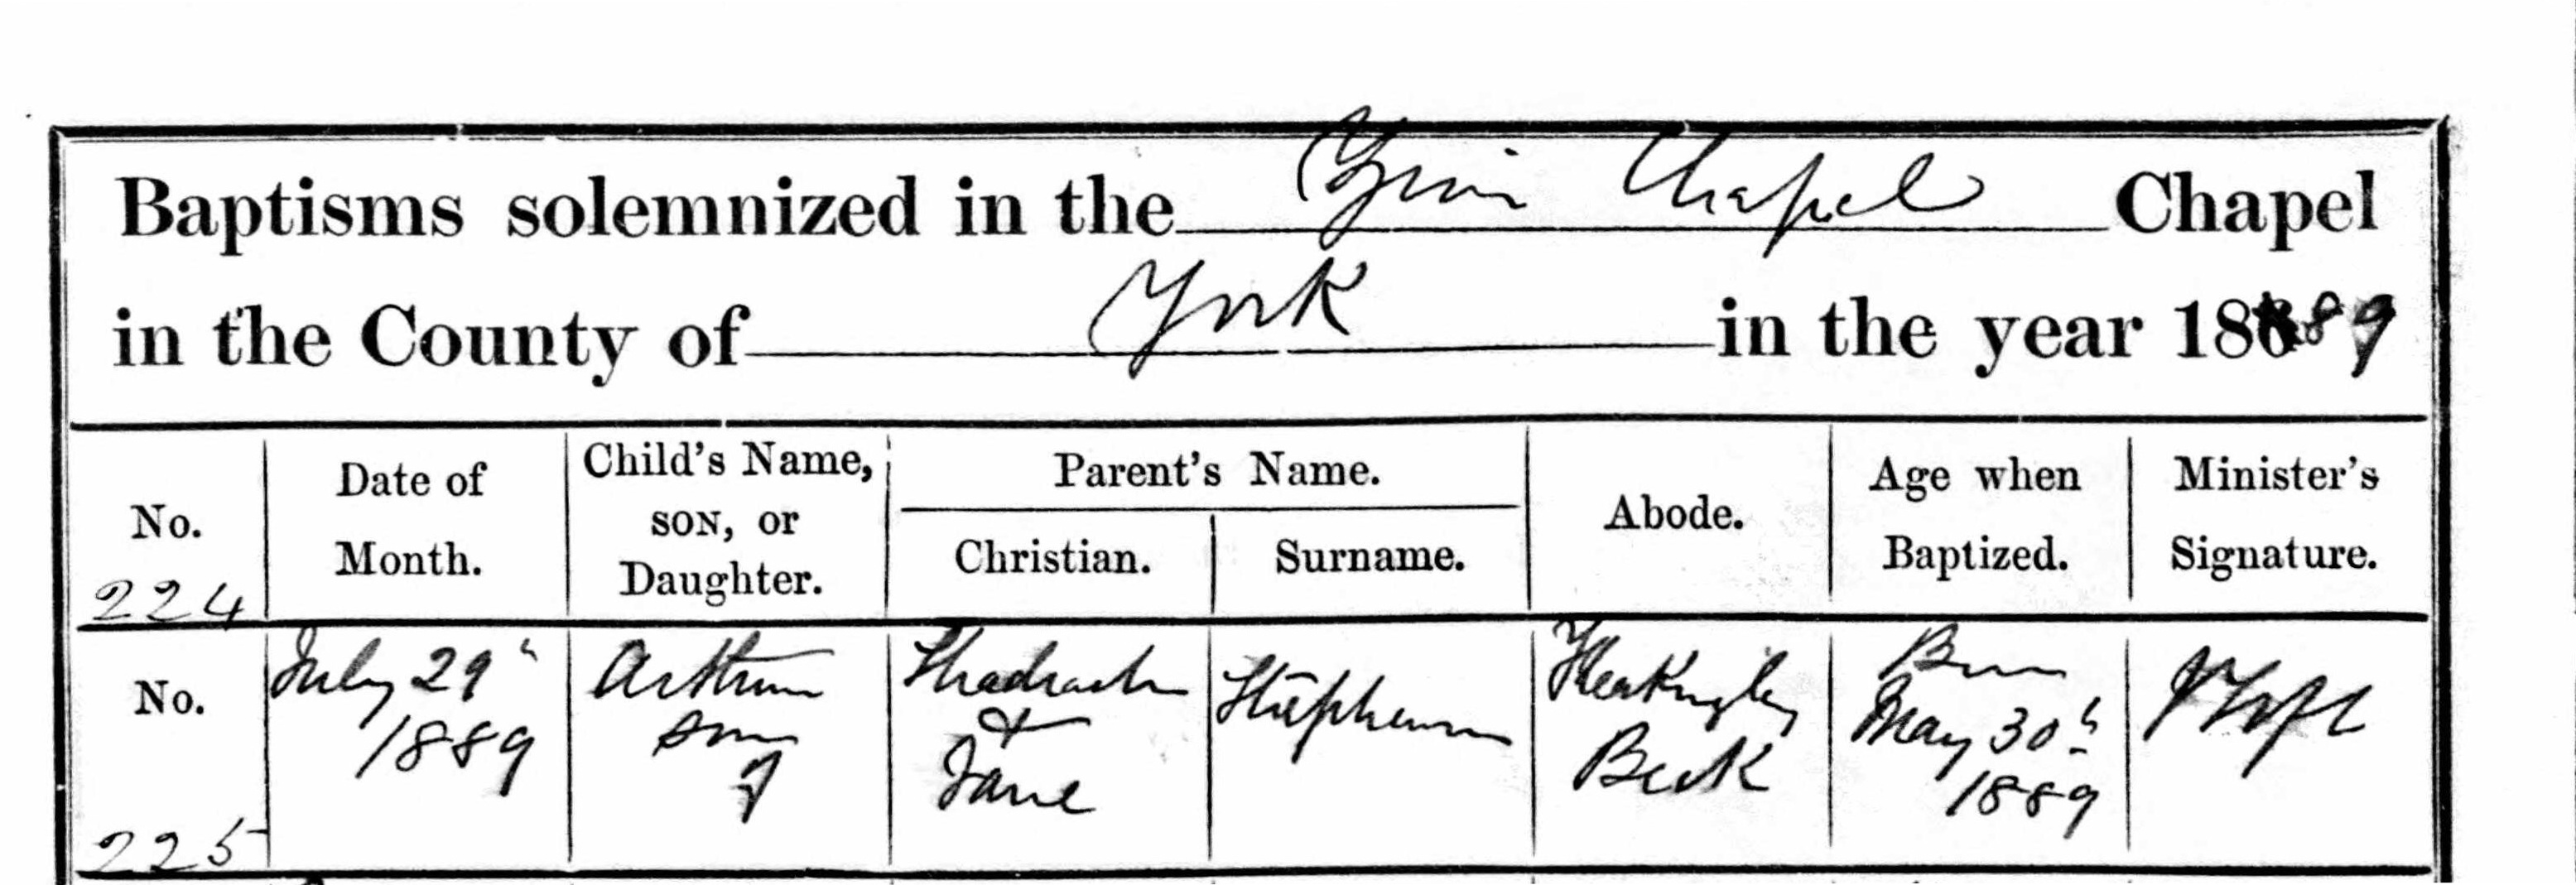 Baptisms solemnized in the Zion Chapel Chapel
in the County of York in the year 1889
No. Date of Month. Child's Name, SON, or Daughter. Parent's Name. Christian. Surname. Abode. Age when Baptized. Minister's Signature.
224
No. July 29th Arthur Shadrach Stephenson Heckingley Born
1889 son & Beck May 30th
of Jane 1889
225